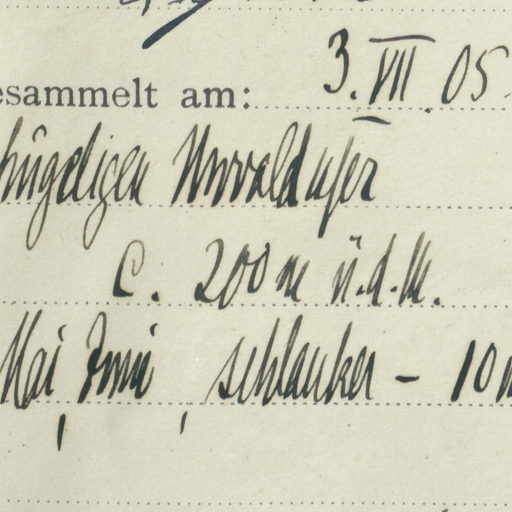 esammelt am: 3. VII. 05.
hügeligen Urwaldufer
c. 200 m ü.d.M.
Mai, Juni, schlanker – 10 m